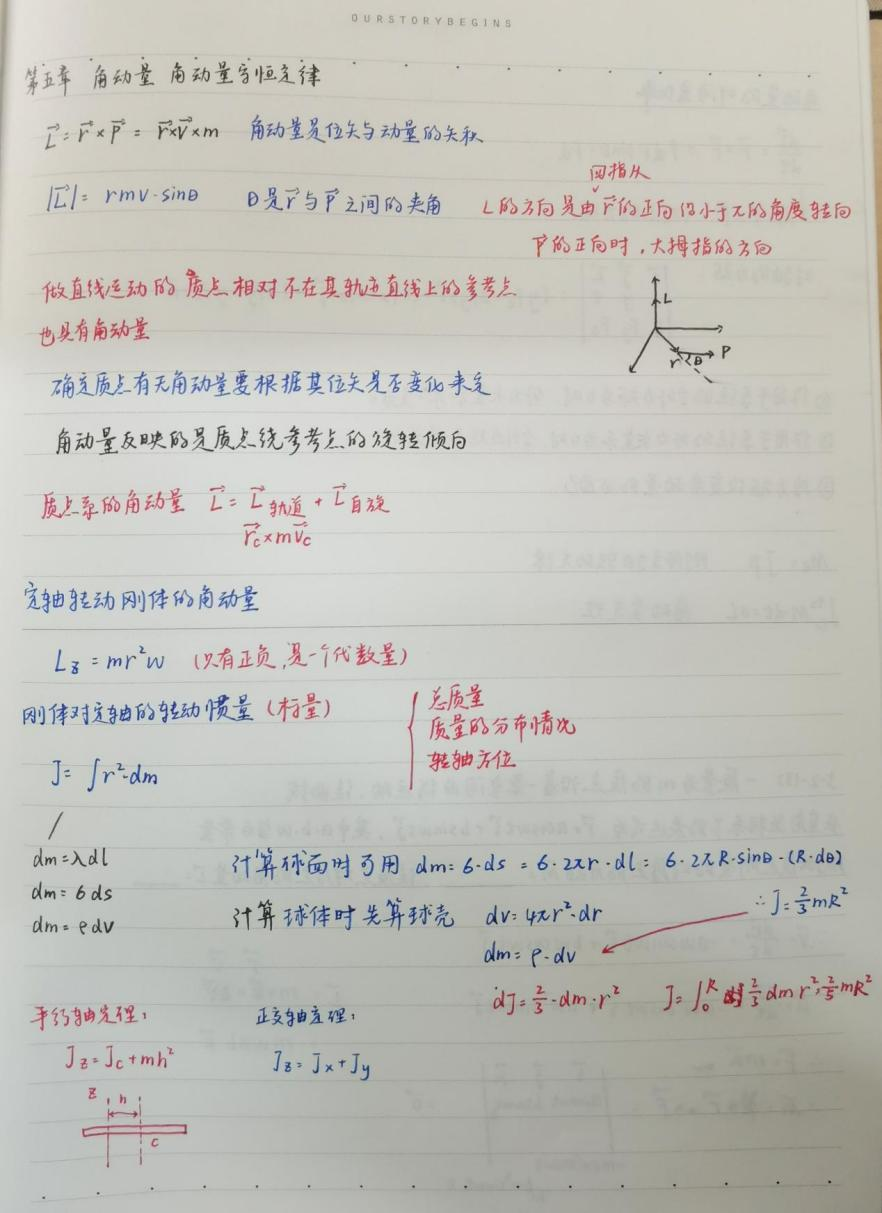 OURSTORYBEGINS
第五章 角动量 角动量守恒定律
L⃗ = r⃗ × P⃗ = r⃗×v⃗×m 角动量是位矢与动量的矢积
四指从
|L⃗| = rmv·sinθ θ是r⃗与P⃗之间的夹角 L的方向是由r⃗的正向沿小于π的角度转向
P⃗的正向时，大拇指的方向
做直线运动的质点相对不在其轨迹直线上的参考点
也具有角动量
L
r θ P
确定质点有无角动量要根据其位矢是否变化来定
角动量反映的是质点绕参考点的旋转倾向
质点系的角动量 L⃗ = L⃗轨道 + L⃗自旋
r⃗c×mv⃗c
定轴转动刚体的角动量
Lz = mr²w （只有正负，是一个代数量）
刚体对定轴的转动惯量（标量）
总质量
质量的分布情况
转轴方位
J = ∫r²·dm
dm = λdl 计算球面时可用 dm = 6·ds = 6·2πr·dl = 6·2πR·sinθ·(R·dθ)
dm = 6ds
dm = ρdv 计算球体时先算球壳 dv = 4πr²·dr ∴ J = 2/3 mR²
dm = ρ·dv
dJ = 2/3·dm·r² J = ∫₀ᴿ 2/3 dm r² = 2/5 mR²
平行轴定理： 正交轴定理：
Jz = Jc + mh² Jz = Jx + Jy
z h
c